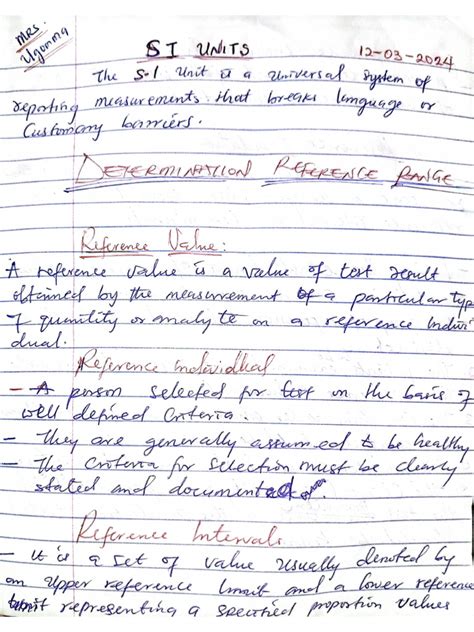 Mrs.
Ugonna
SI UNITS
12-03-2024
The S.I Unit is a Universal System of
reporting measurements that breaks language or
Customary barriers.
DETERMINATION REFERENCE RANGE
Reference Value:
A reference value is a value of test result
obtained by the measurement of a particular type
of quantity or analyte on a reference indivi
dual.
Reference individual
- A person selected for test on the basis of
well defined Criteria.
- They are generally assumed to be healthy
- The Criteria for Selection must be clearly
stated and documented
Reference Intervals
- it is a set of value usually denoted by
an upper reference limit and a lower reference
limit representing a specified proportion values